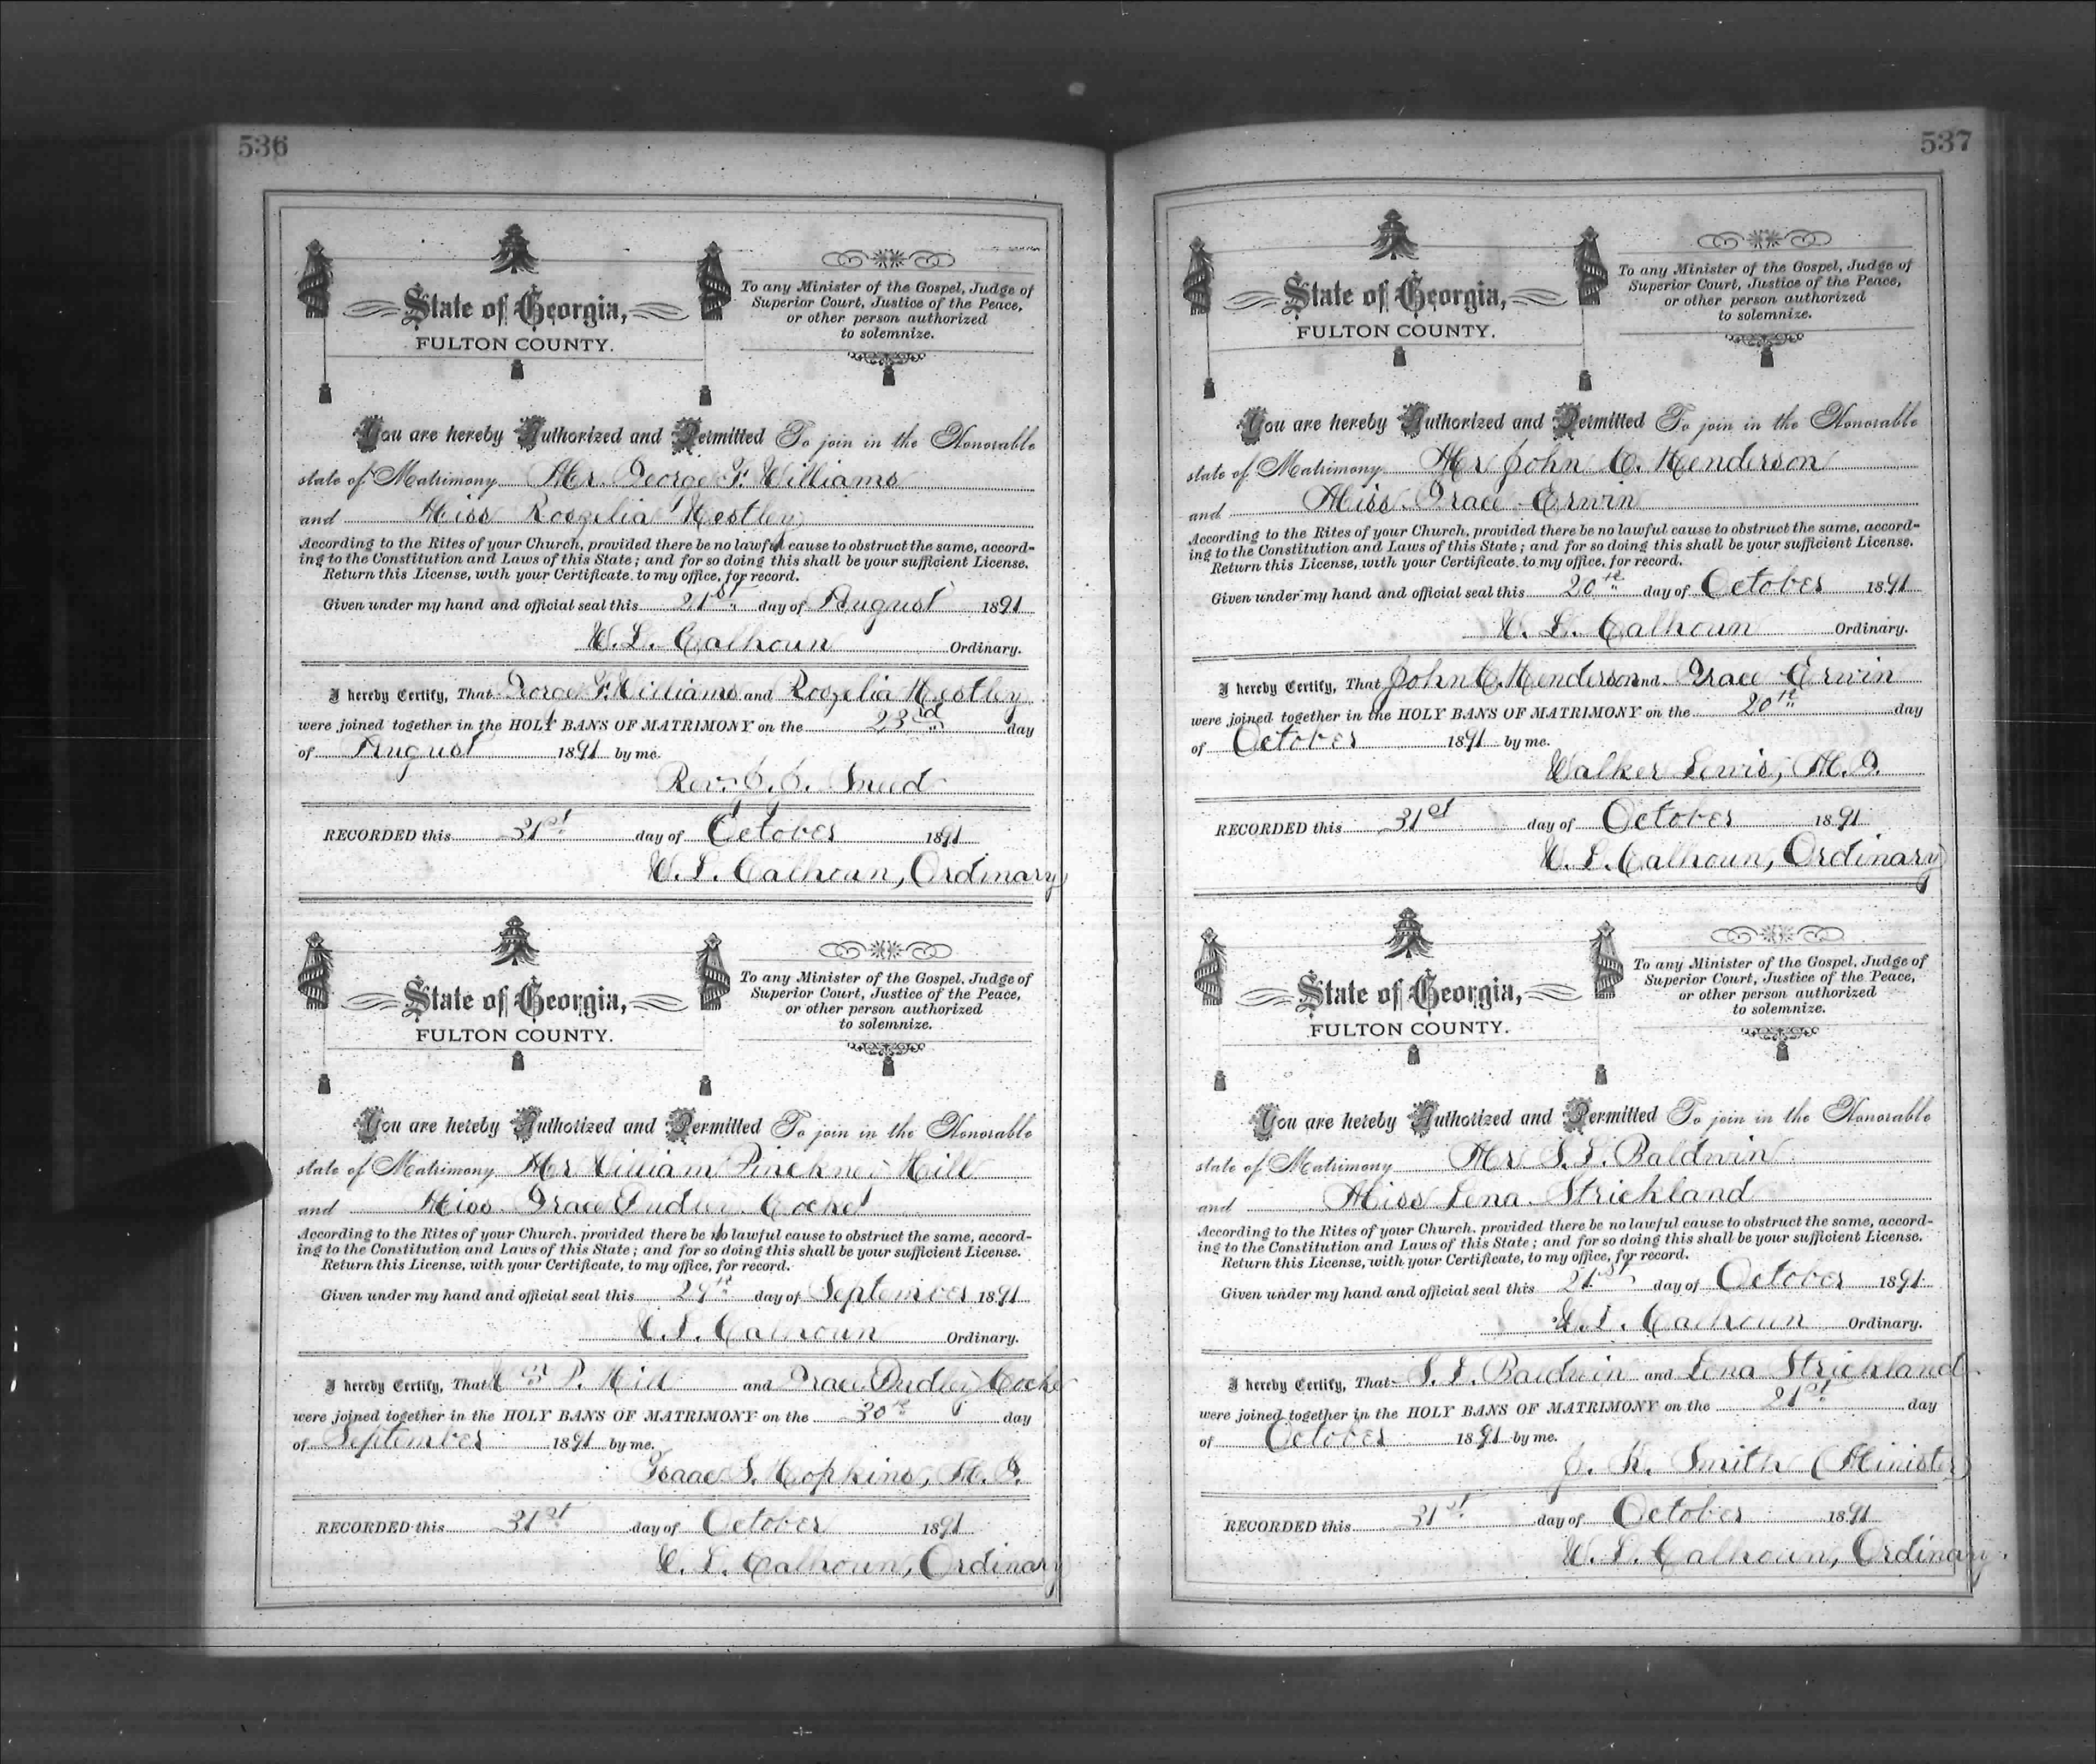 536
State of Georgia,
FULTON COUNTY.
To any Minister of the Gospel, Judge of
Superior Court, Justice of the Peace,
or other person authorized
to solemnize.
You are hereby Authorized and Permitted To join in the Honorable
state of Matrimony Mr. George F. Williams
and Miss Rosgelia Westley
According to the Rites of your Church, provided there be no lawful cause to obstruct the same, accord-
ing to the Constitution and Laws of this State; and for so doing this shall be your sufficient License.
Return this License, with your Certificate, to my office, for record.
Given under my hand and official seal this 21st day of August 1891
W. L. Calhoun Ordinary.
I hereby Certify, That George F. Williams and Westley
were joined together in the HOLY BANS OF MATRIMONY on the 23rd day
of August 1891 by me.
Rev. J. J. Sneed
RECORDED this 31st day of October 1891
W. L. Calhoun, Ordinary
State of Georgia,
FULTON COUNTY.
To any Minister of the Gospel, Judge of
Superior Court, Justice of the Peace,
or other person authorized
to solemnize.
You are hereby Authorized and Permitted To join in the Honorable
state of Matrimony Mr William Pinckney Hill
and Miss Grace Dudley Cocke
According to the Rites of your Church, provided there be no lawful cause to obstruct the same, accord-
ing to the Constitution and Laws of this State; and for so doing this shall be your sufficient License.
Return this License, with your Certificate, to my office, for record.
Given under my hand and official seal this 29th day of September 1891
W. L. Calhoun Ordinary.
I hereby Certify, That Wm P. Hill and Grace Dudley Cocke
were joined together in the HOLY BANS OF MATRIMONY on the 30th day
of September 1891 by me.
Isaac S. Hopkins, M. G.
RECORDED this 31st day of October 1891
W. L. Calhoun, Ordinary
537
State of Georgia,
FULTON COUNTY.
To any Minister of the Gospel, Judge of
Superior Court, Justice of the Peace,
or other person authorized
to solemnize.
You are hereby Authorized and Permitted To join in the Honorable
state of Matrimony Mr John C. Henderson
and Miss Grace Erwin
According to the Rites of your Church, provided there be no lawful cause to obstruct the same, accord-
ing to the Constitution and Laws of this State; and for so doing this shall be your sufficient License.
Return this License, with your Certificate, to my office, for record.
Given under my hand and official seal this 20th day of October 1891
W. L. Calhoun Ordinary.
I hereby Certify, That John C. Henderson and Grace Erwin
were joined together in the HOLY BANS OF MATRIMONY on the 20th day
of October 1891 by me.
Walker Lewis, M. G.
RECORDED this 31st day of October 1891
W. L. Calhoun, Ordinary
State of Georgia,
FULTON COUNTY.
To any Minister of the Gospel, Judge of
Superior Court, Justice of the Peace,
or other person authorized
to solemnize.
You are hereby Authorized and Permitted To join in the Honorable
state of Matrimony Mr S. L. Baldwin
and Miss Lena Strickland
According to the Rites of your Church, provided there be no lawful cause to obstruct the same, accord-
ing to the Constitution and Laws of this State; and for so doing this shall be your sufficient License.
Return this License, with your Certificate, to my office, for record.
Given under my hand and official seal this 21st day of October 1891
W. L. Calhoun Ordinary.
I hereby Certify, That S. L. Baldwin and Lena Strickland
were joined together in the HOLY BANS OF MATRIMONY on the 21st day
of October 1891 by me.
J. K. Smith (Minister)
RECORDED this 31st day of October 1891
W. L. Calhoun, Ordinary.